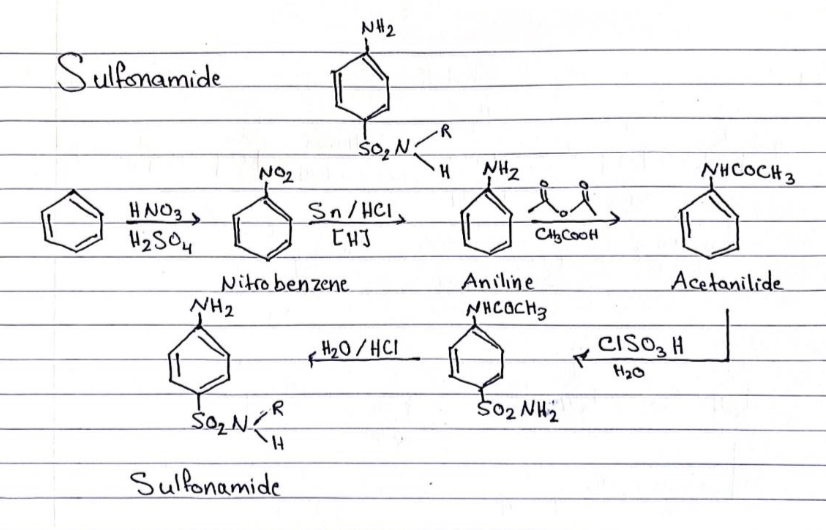 NH2
Sulfonamide
SO2N
R
H
NO2
NH2
NHCOCH3
HNO3
H2SO4
Sn/HCl
[H]
O O
O
CH3COOH
Nitrobenzene
Aniline
Acetanilide
NH2
NHCOCH3
H2O/HCl
ClSO3H
H2O
SO2N
R
H
SO2NH2
Sulfonamide